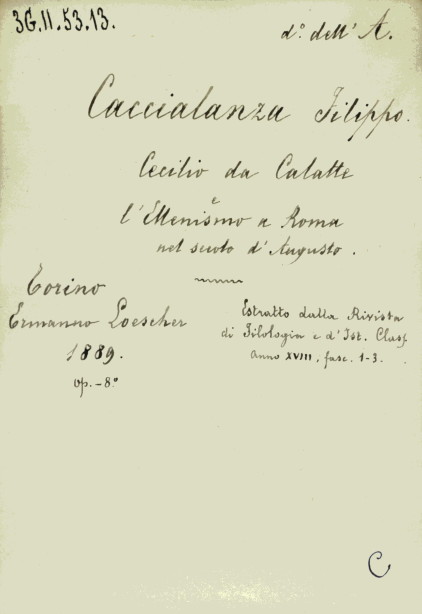 3G.II.53.13.
d.º dell' A.
Caccialanza Filippo.
Cecilio da Calatte
e
l'Ellenismo a Roma
nel secolo d'Augusto.
Torino
Ermanno Loescher
1889.
op.-8.º
Estratto dalla Rivista
di Filologia e d'Ist. Class.
Anno XVIII, fasc. 1-3.
C